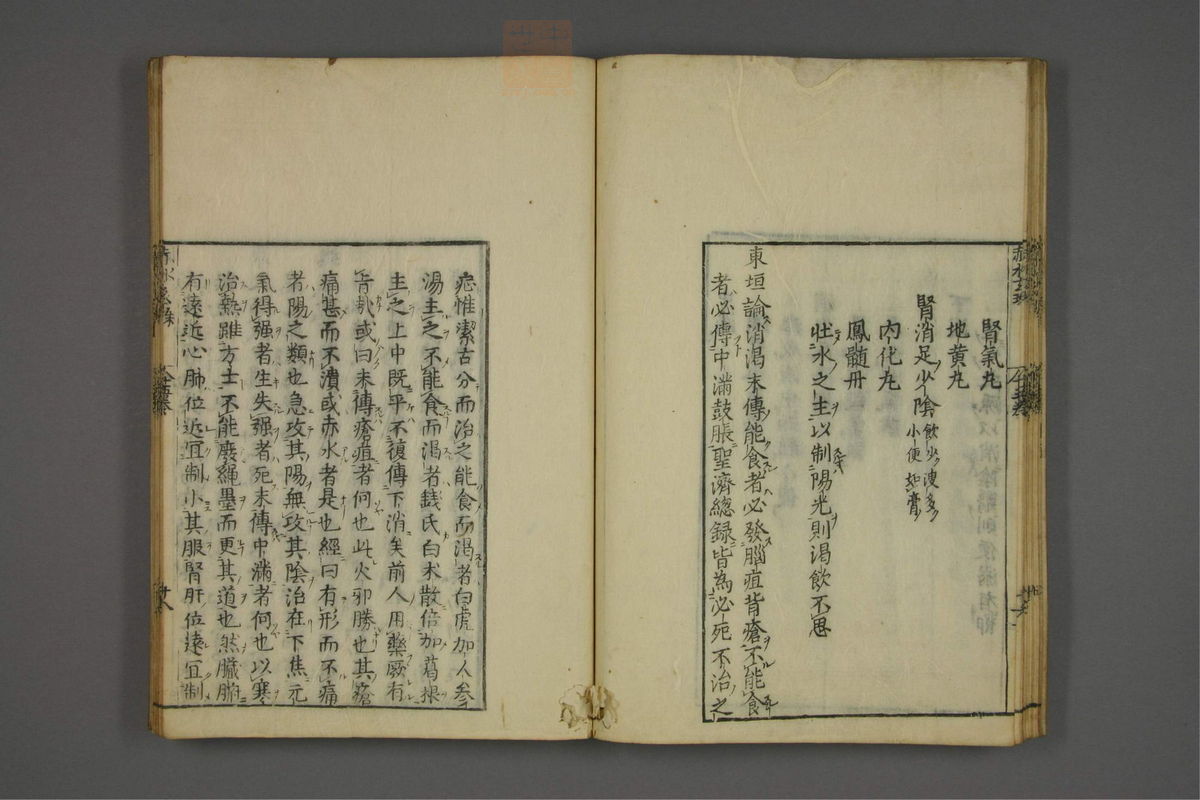 腎氣丸
地黄丸
腎消足少陰飲少溲多小便如膏
内化丸
鳳髓丹
壮水之主以制陽光則渴飲不思
東垣論消渴末傳能食者必發腦疽背瘡不能食
者必傳中滿鼓脹聖濟總録皆為必死不治之
疟惟潔古分而治之能食而渴者白虎加人參
湯主之不能食而渴者錢氏白朮散倍加葛根
主之上中既平不復傳下消矣前人用藥厥有
旨哉或曰未傳瘡疽者何也此火邪勝也其瘡
痛甚而不潰或赤水者是也經曰有形而不痛
者陽之類也急攻其陽無攻其陰治在下焦元
氣得强者生失强者死末傳中滿者何也以寒
治熱雖方士不能廢繩墨而更其道也然臟腑
有遠近心肺位近宜制小其服腎肝位遠宜制